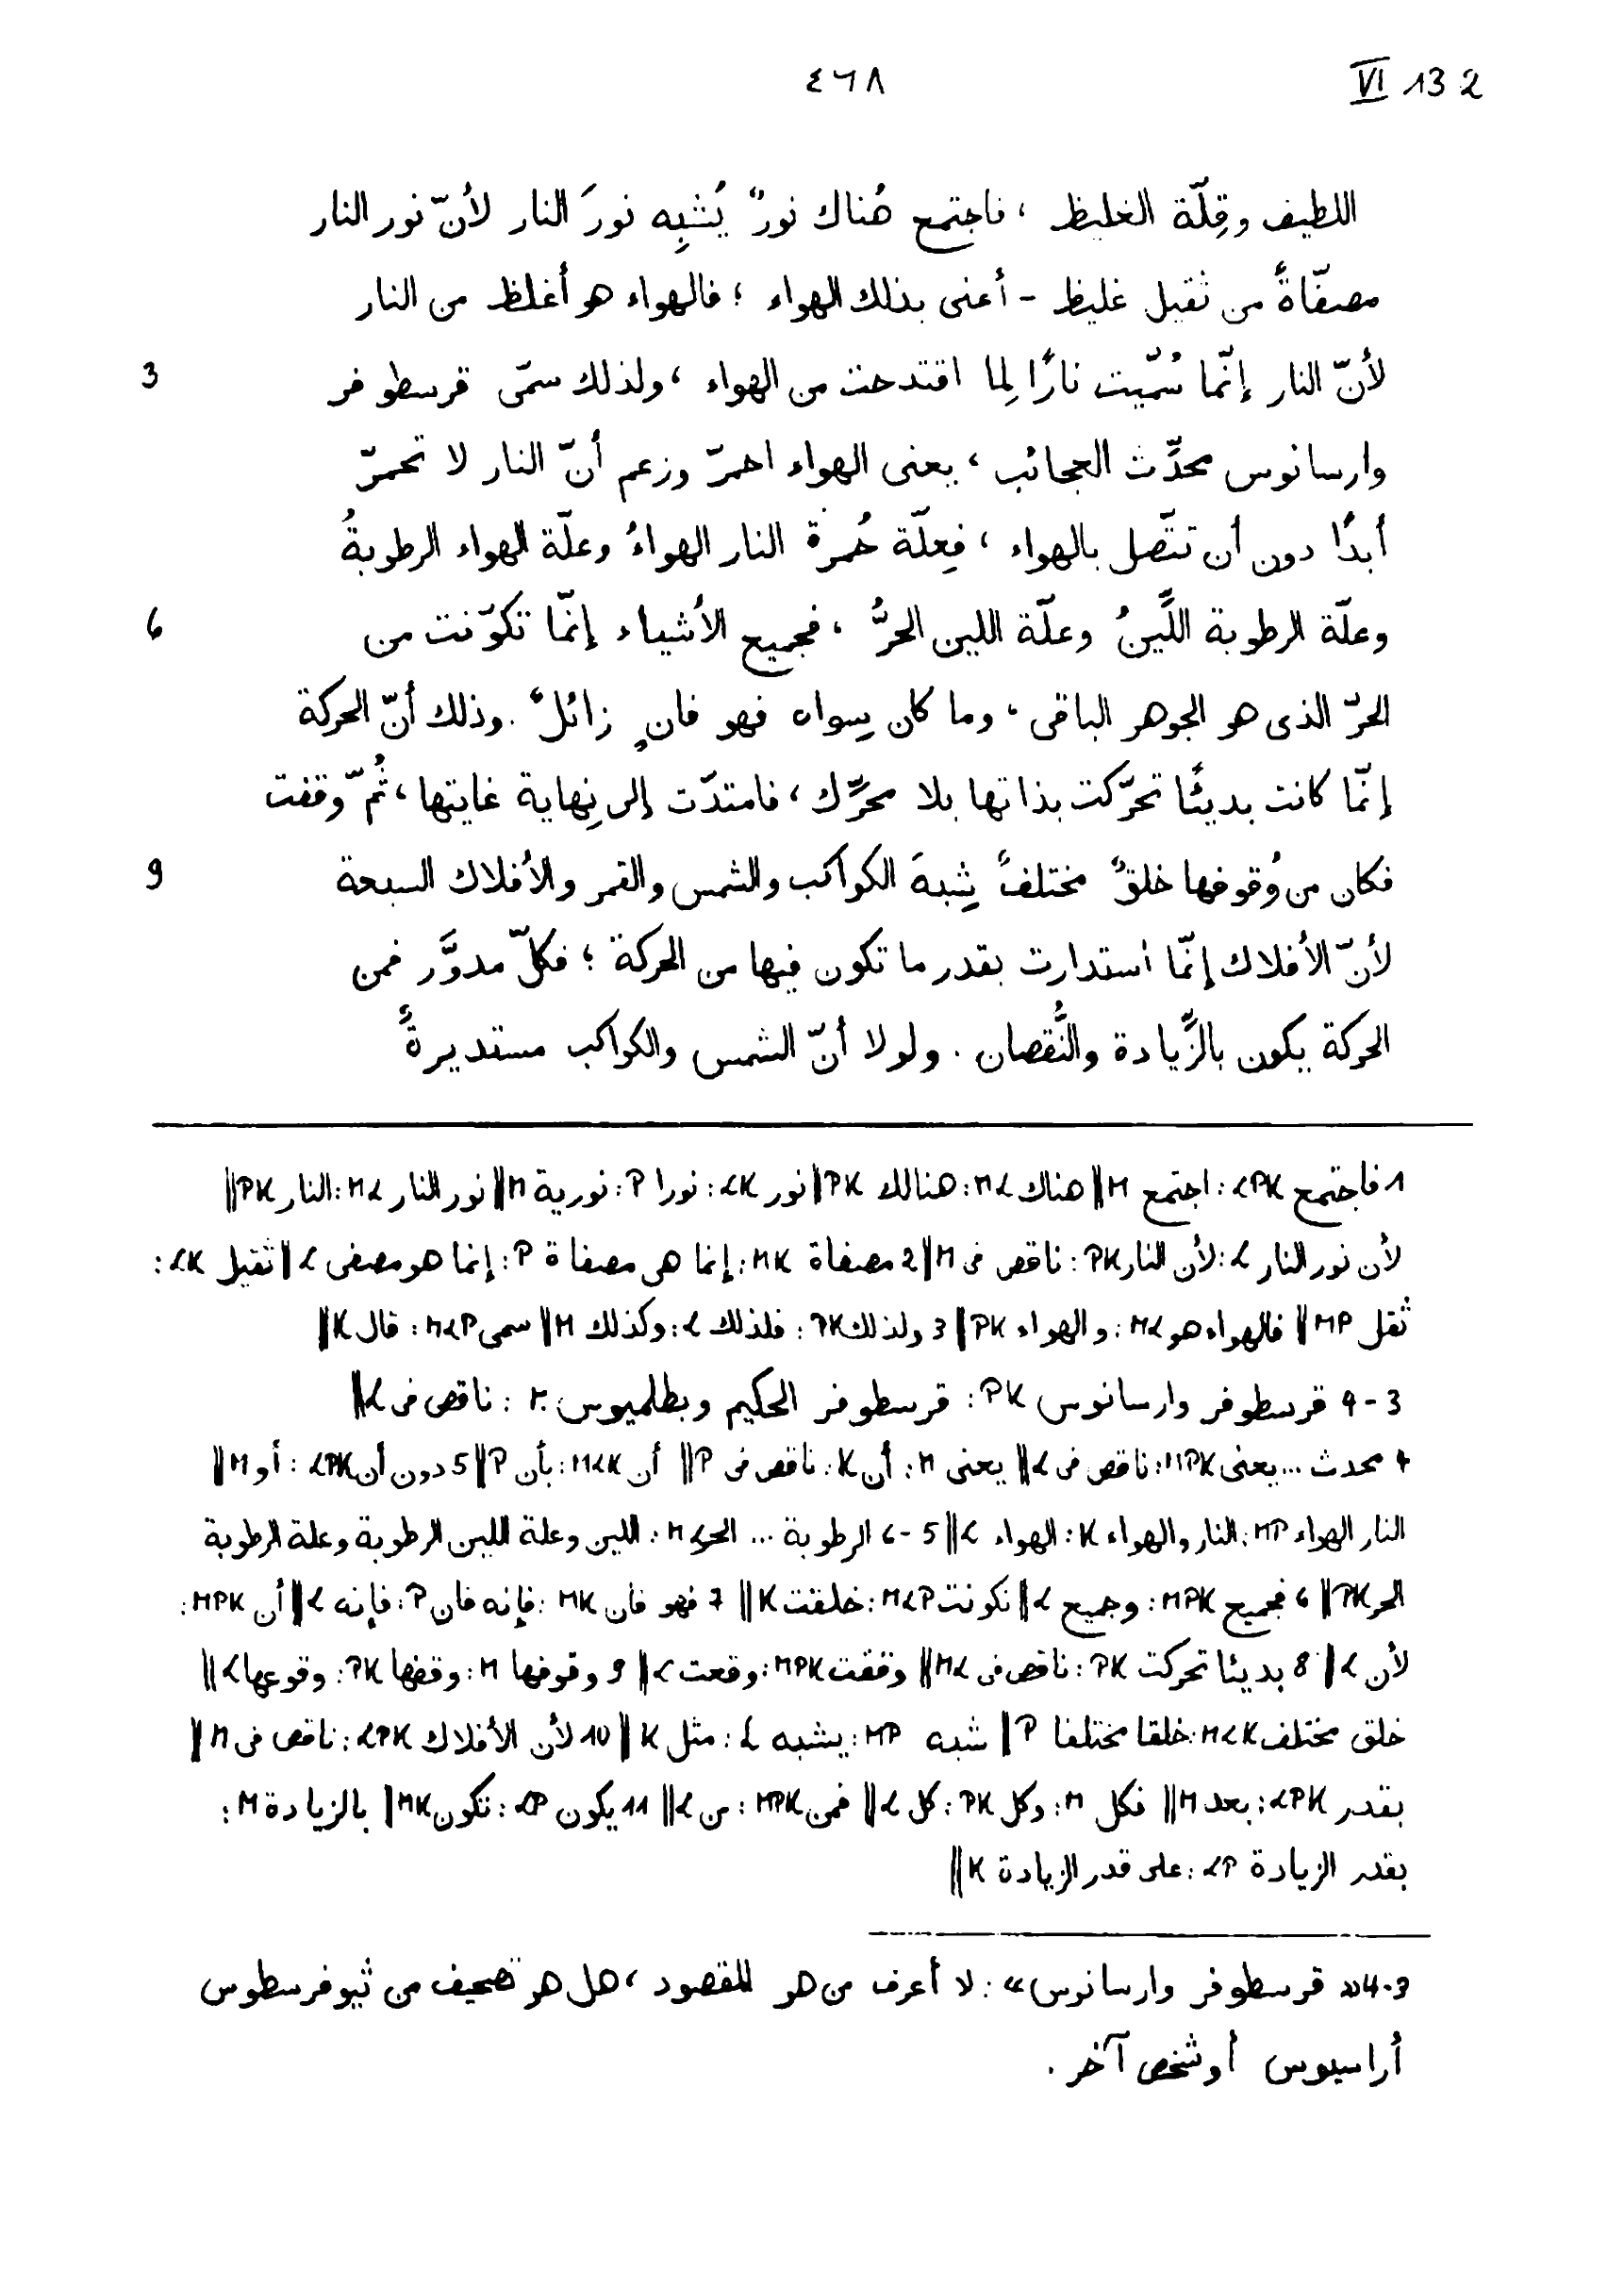 ٤٦٨ VI 13 2
اللطيف وقِلّة الغليظ ، فاجتمع هُناك نورٌ يُشبِه نورَ النار لأنّ نور النار
مصفّاةً من ثقيل غليظ - أعنى بذلك الهواء ؛ فالهواء هو أغلظ من النار
لأنّ النار إنّما سُمّيت نارًا لِما اقتدحت من الهواء ، ولذلك سمّى قرسطوفر 3
وارسانوس محدِّث العجائب ، يعنى الهواء احمرّ وزعم أنّ النار لا تحمرّ
أبدًا دون أن تتّصل بالهواء ، فعِلّة حُمرة النار الهواءُ وعلّة الهواء الرطوبةُ
وعلّة الرطوبة اللِّينُ وعلّة اللين الحرُّ ، فجميع الأشياء إنّما تكوّنت من 6
الحرّ الذى هو الجوهر الباقى ، وما كان سِواه فهو فانٍ زائلٌ . وذلك أنّ الحركة
إنّما كانت بديئًا تحرّكت بذاتها بلا محرِّك ، فامتدّت إلى نِهاية غايتها ، ثُمّ وقفت
فكان من وُقوفها خلقٌ مختلفٌ شِبهَ الكواكب والشمس والقمر والأفلاك السبعة 9
لأنّ الأفلاك إنّما استدارت بقدر ما تكون فيها من الحركة ؛ فكلّ مدوَّر فمن
الحركة يكون بالزِّيادة والنُّقصان . ولولا أنّ الشمس والكواكب مستديرةً
1 فاجتمع LPK : اجتمع M || هناك ML : هنالك PK || نور LK : نورا P : نورية M || نور النار ML : النار PK ||
لأن نور النار L : لأن النار PK : ناقص فى M || 2 مصفاة MK : إنما هى مصفاة P : إنما هو مصفى L || ثقيل LK :
ثقل MP || فالهواء هو ML : والهواء PK || 3 ولذلك PK : فلذلك L : وكذلك M || سمى MLP : قال K ||
3-4 قرسطوفر وارسانوس PK : قرسطوفر الحكيم وبطلميوس M : ناقص فى L ||
4 محدث ... يعنى MPK : ناقص فى L || يعنى M : أن K : ناقص فى P || أن MLK : بأن P || 5 دون أن LPK : أو M ||
النار الهواء MP : النار والهواء K : الهواء L || 5-6 الرطوبة ... الحر ML : اللين وعلة اللين الرطوبة وعلة الرطوبة
الحر PK || 6 فجميع MPK : وجميع L || تكونت MLP : خلقت K || 7 فهو فان MK : فإنه فان P : فإنه L || أن MPK :
لأن L || 8 بديئا تحركت PK : ناقص فى ML || وقفت MPK : وقعت L || 9 وقوفها M : وقفها PK : وقوعها L ||
خلق مختلف MLK : خلقا مختلفا P || شبه MP : يشبه L : مثل K || 10 لأن الأفلاك LPK : ناقص فى M ||
بقدر LPK : بعد M || فكل M : وكل PK : كل L || فمن MPK : من L || 11 يكون LP : تكون MK || بالزيادة M :
بقدر الزيادة LP : على قدر الزيادة K ||
3-4 « قرسطوفر وارسانوس » : لا أعرف من هو المقصود ، هل هو تصحيف من ثيوفرسطوس
أراسيوس أو شخص آخر .